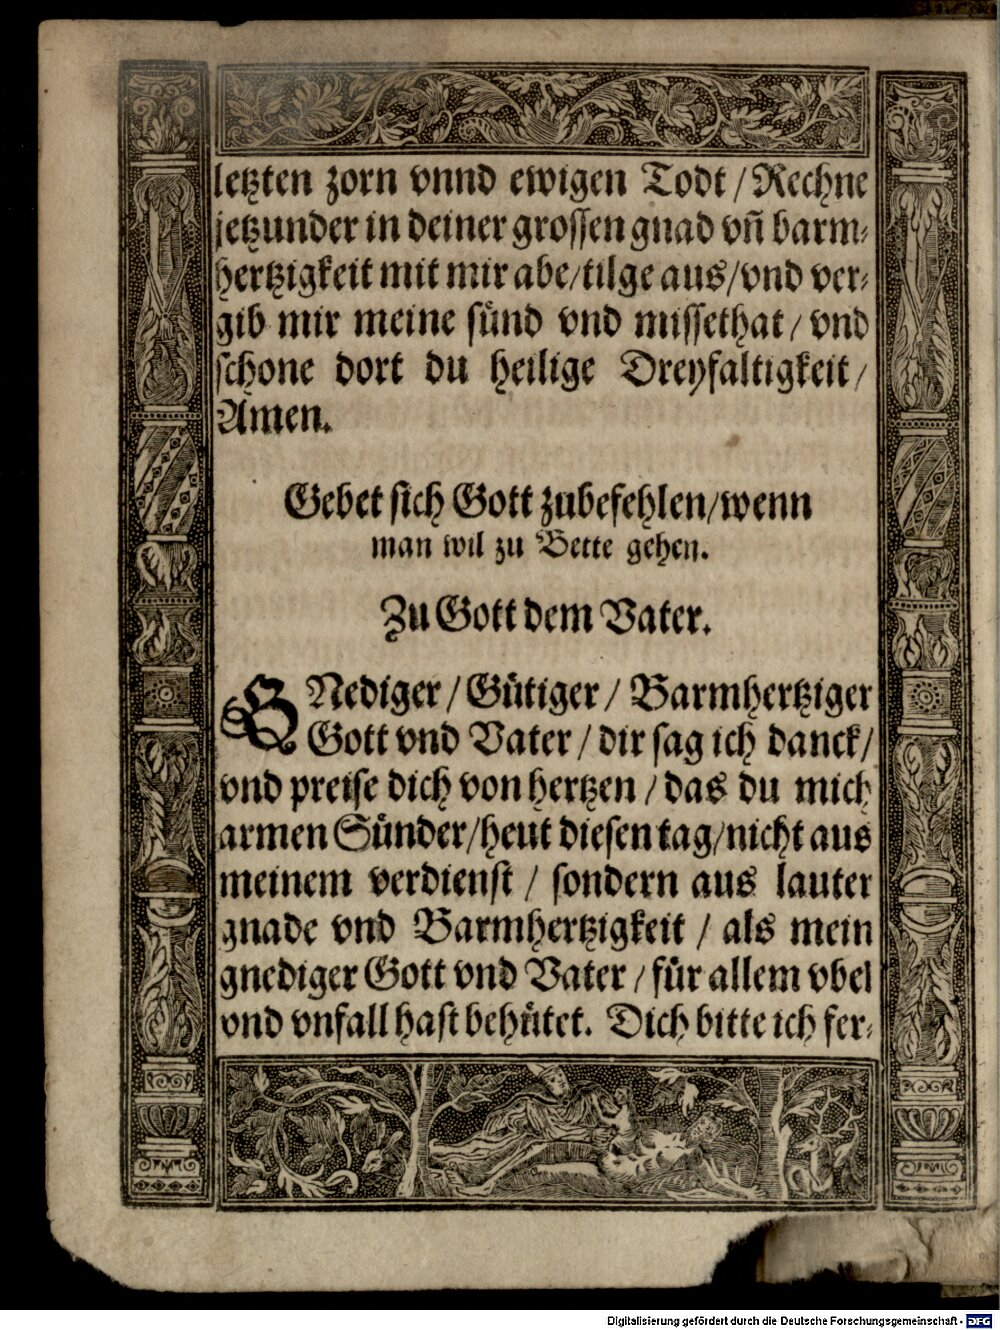 letzten zorn vnnd ewigen Todt / Rechne
jetzunder in deiner grossen gnad vñ barm⸗
hertzigkeit mit mir abe/tilge aus/vnd ver⸗
gib mir meine sünd vnd missethat / vnd
schone dort du heilige Dreyfaltigkeit /
Amen.
Gebet sich Gott zubefehlen/wenn
man wil zu Bette gehen.
Zu Gott dem Vater.
GNediger / Gütiger / Barmhertziger
Gott vnd Vater / dir sag ich danck/
vnd preise dich von hertzen / das du mich
armen Sünder/heut diesen tag/nicht aus
meinem verdienst / sondern aus lauter
gnade vnd Barmhertzigkeit / als mein
gnediger Gott vnd Vater / für allem vbel
vnd vnfall hast behütet. Dich bitte ich fer⸗
Digitalisierung gefördert durch die Deutsche Forschungsgemeinschaft - DFG